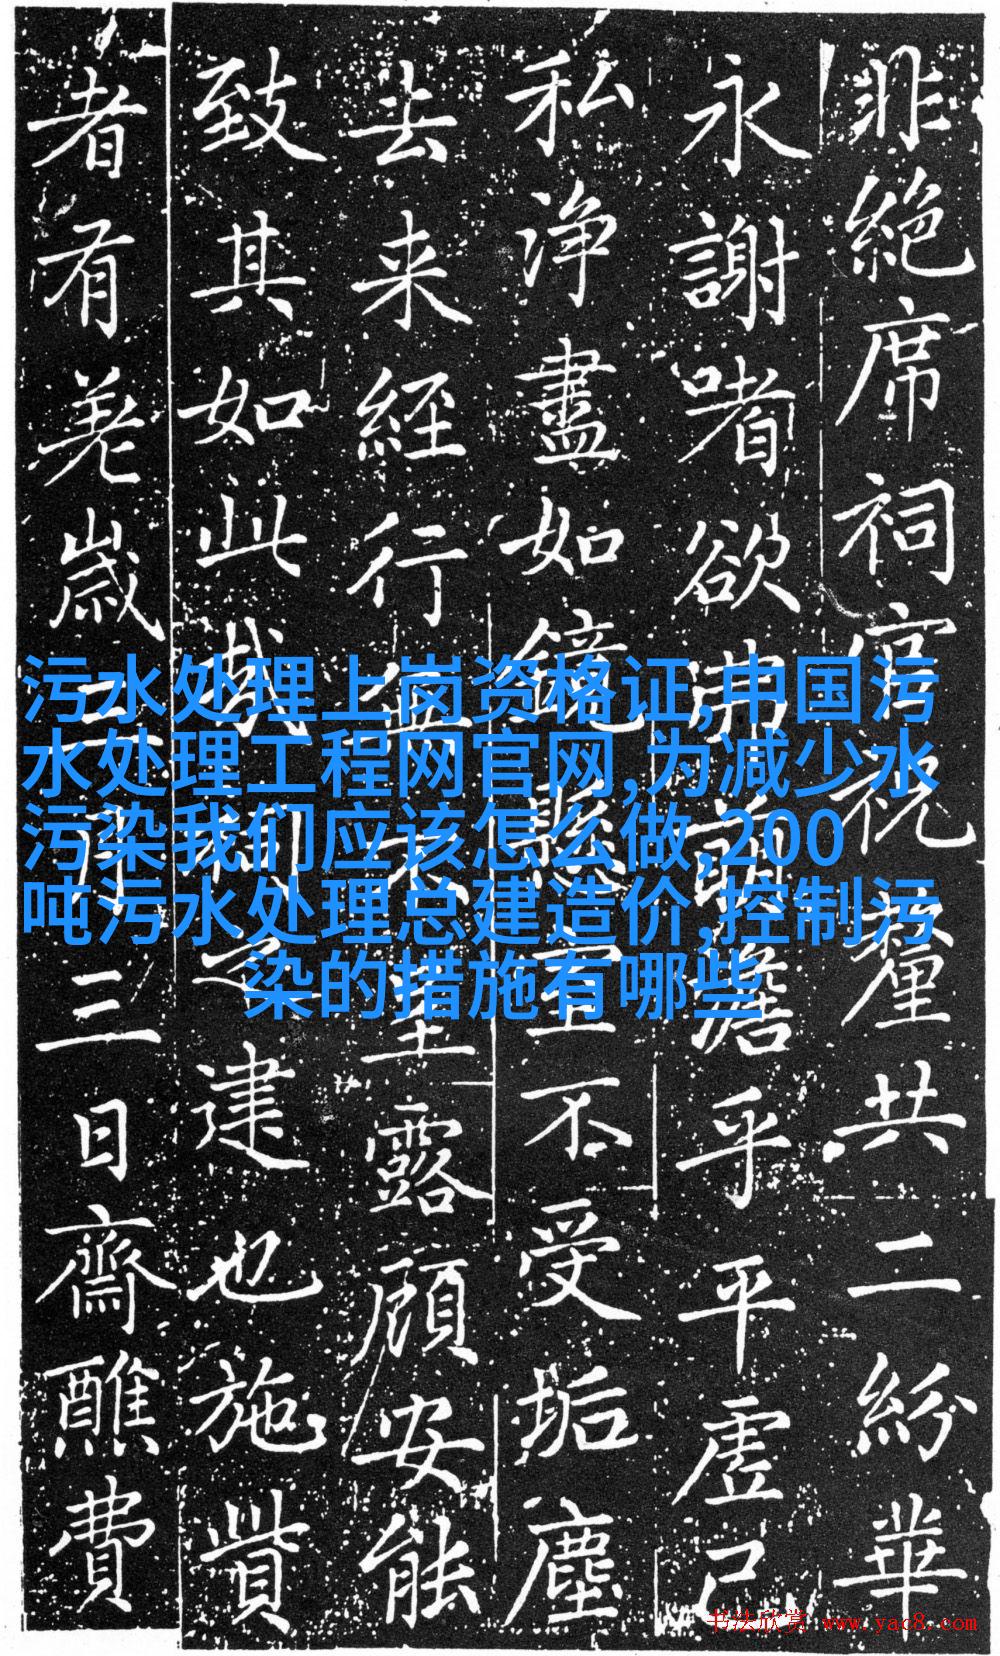 非絶席祠官祝釐共二紛華
永謝嗜欲沸羶膽乎平虛己
私浄盡如鏡懸空不受垢塵
去来經行無里露顧安能
致其如此哉祠之建也施貲
者有羌歲三日齋醮費
污水处理上岗资格证,中国污
水处理工程网官网,为减少水
污染我们应该怎么做,200
吨污水处理总建造价,控制污
染的措施有哪些
书法欣赏 www.yac8.com